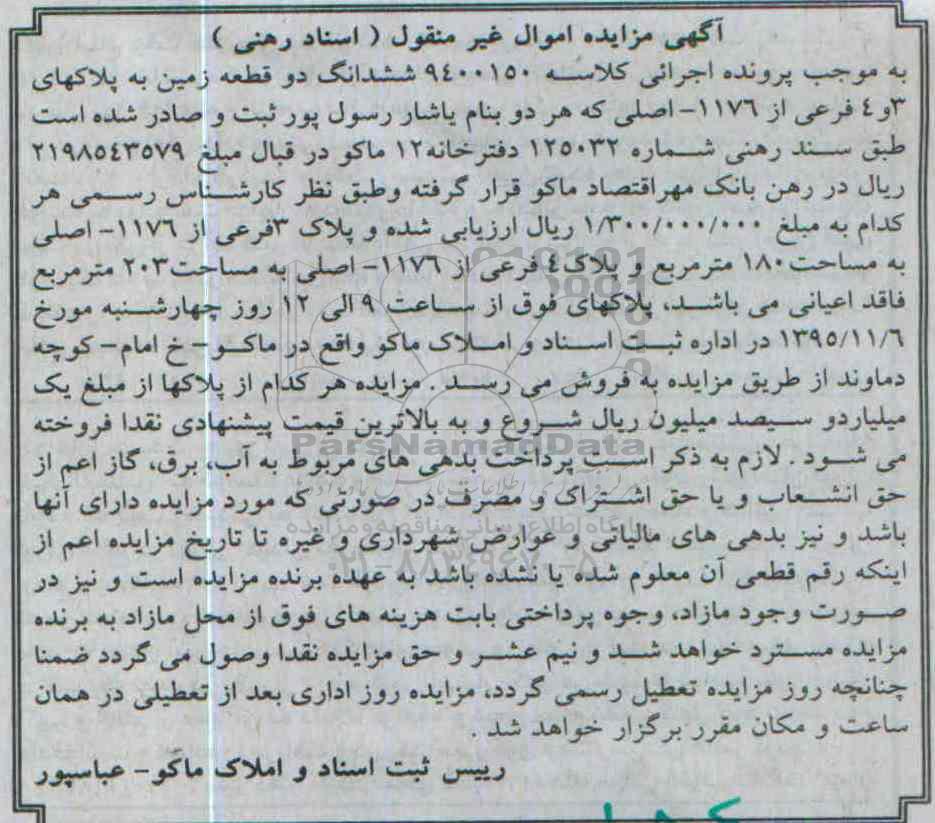 آگهی مزایده اموال غیر منقول ( اسناد رهنی )
به موجب پرونده اجرائی کلاسه ۹۴۰۰۱۵۰ ششدانگ دو قطعه زمین به پلاکهای
۳و٤ فرعی از ۱۱۷٦- اصلی که هر دو بنام یاشار رسول پور ثبت و صادر شده است
طبق سند رهنی شماره ۱۲۵۰۳۲ دفترخانه۱۲ ماکو در قبال مبلغ ۲۱۹۸۵٤۳۵۷۹
ریال در رهن بانک مهراقتصاد ماکو قرار گرفته وطبق نظر کارشناس رسمی هر
کدام به مبلغ ۱/۳۰۰/۰۰۰/۰۰۰ ریال ارزیابی شده و پلاک ۳فرعی از ۱۱۷٦- اصلی
به مساحت۱۸۰ مترمربع و پلاک٤ فرعی از ۱۱۷٦- اصلی به مساحت۲۰۳ مترمربع
فاقد اعیانی می باشد، پلاکهای فوق از ساعت ۹ الی ۱۲ روز چهارشنبه مورخ
۱۳۹۵/۱۱/٦ در اداره ثبت اسناد و املاک ماکو واقع در ماکو- خ امام- کوچه
دماوند از طریق مزایده به فروش می رسد . مزایده هر کدام از پلاکها از مبلغ یک
میلیاردو سیصد میلیون ریال شروع و به بالاترین قیمت پیشنهادی نقدا فروخته
می شود . لازم به ذکر است پرداخت بدهی های مربوط به آب، برق، گاز اعم از
حق انشعاب و یا حق اشتراک و مصرف در صورتی که مورد مزایده دارای آنها
باشد و نیز بدهی های مالیاتی و عوارض شهرداری و غیره تا تاریخ مزایده اعم از
اینکه رقم قطعی آن معلوم شده یا نشده باشد به عهده برنده مزایده است و نیز در
صورت وجود مازاد، وجوه پرداختی بابت هزینه های فوق از محل مازاد به برنده
مزایده مسترد خواهد شد و نیم عشر و حق مزایده نقدا وصول می گردد ضمنا
چنانچه روز مزایده تعطیل رسمی گردد، مزایده روز اداری بعد از تعطیلی در همان
ساعت و مکان مقرر برگزار خواهد شد .
رییس ثبت اسناد و املاک ماکو- عباسپور
ParsNamadData
پایگاه اطلاع رسانی مناقصه و مزایده
۰۲۱-۸۸۳٤۹٦۷۰-۵